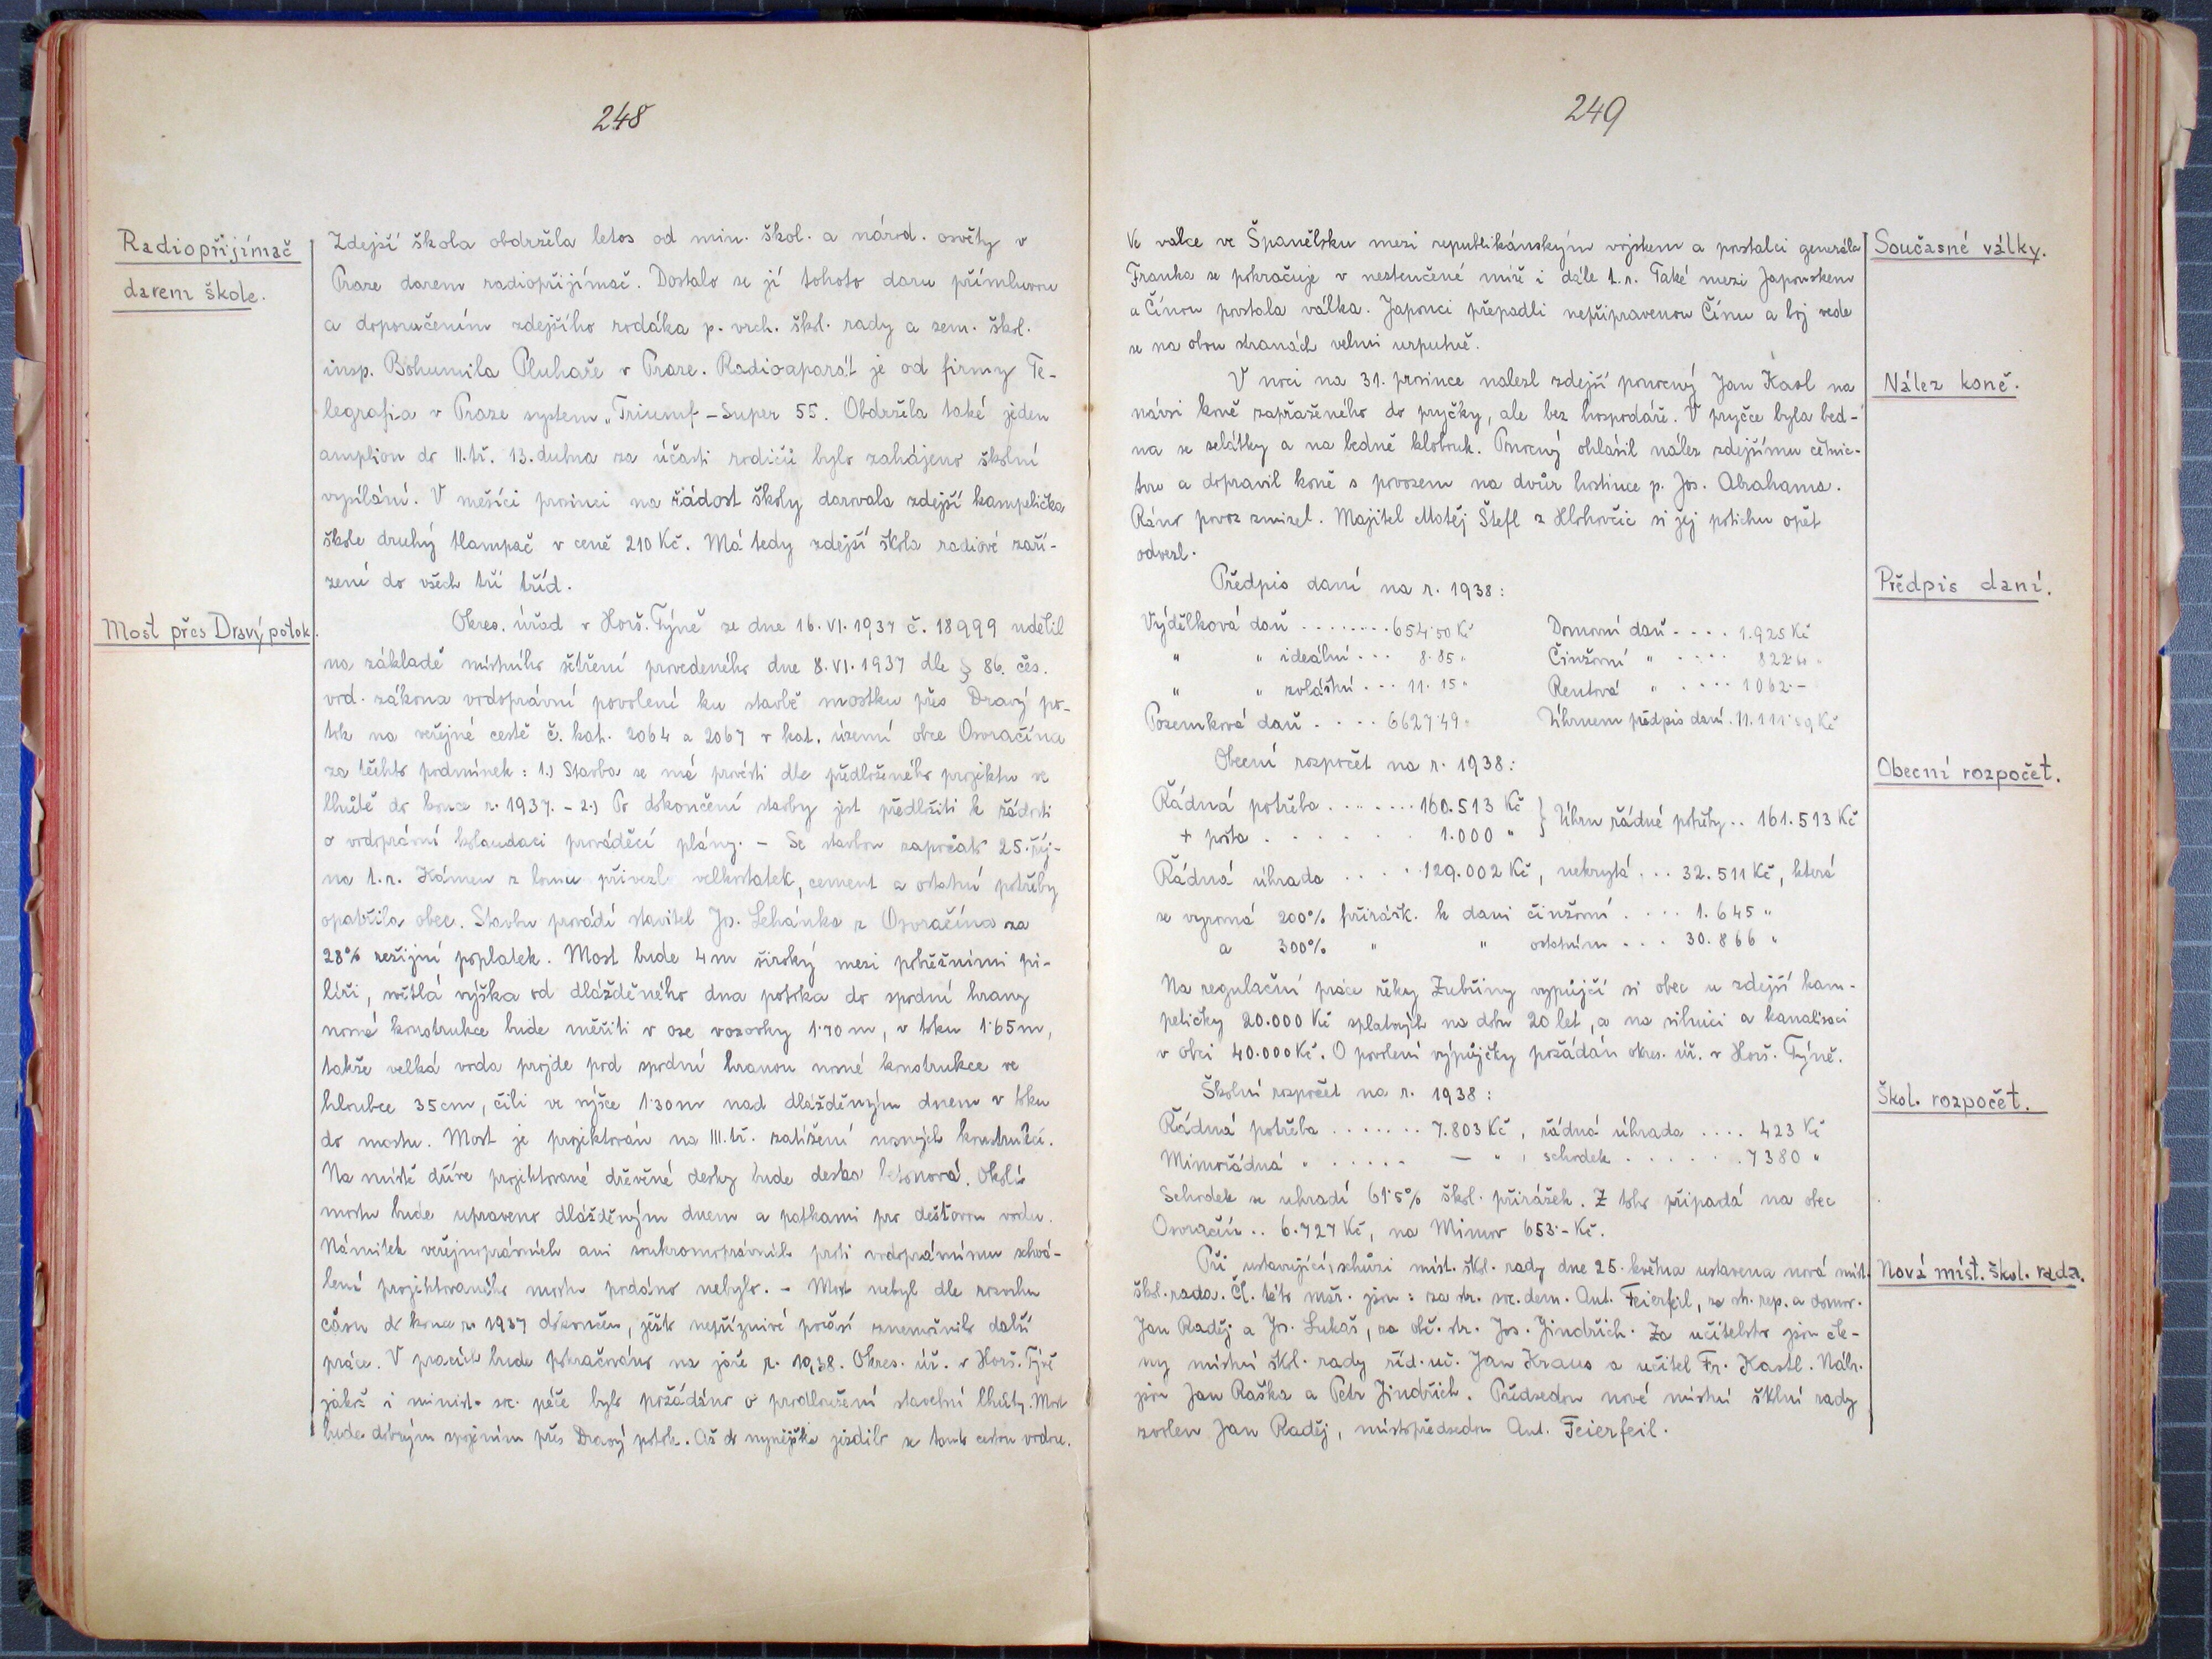 248
Radiopřijímač
darem škole.
Zdejší škola obdržela letos od min. škol. a národ. osvěty v
Praze darem radiopřijímač. Dostalo se jí tohoto daru přímluvou
a doporučením zdejšího rodáka p. vrch. škol. rady a zem. škol.
insp. Bohumila Pluhaře v Praze. Radioaparát je od firmy Te-
legrafia v Praze system „Triumf - Super 55. Obdržela také jeden
amplion do II. tř. 13. dubna za účasti rodičů bylo zahájeno školní
vysílání. V měsíci prosinci na žádost školy darovala zdejší kampelička
škole druhý tlampač v ceně 210 Kč. Má tedy zdejší škola radiové zaří-
zení do všech tří tříd.
Most přes Dravý potok.
Okres. úřad v Horš. Týně ze dne 16. VI. 1937 č. 18999 udělil
na základě místního šetření provedeného dne 8. VI. 1937 dle § 86. čes.
vod. zákona vodoprávní povolení ku stavbě mostku přes Dravý po-
tok na veřejné cestě č. kat. 2064 a 2067 v kat. území obce Osvračína
za těchto podmínek: 1.) Stavba se má provésti dle předloženého projektu ve
lhůtě do konce r. 1937. - 2.) Po dokončení stavby jest předložiti k žádosti
o vodoprávní kolaudaci prováděcí plány. - Se stavbou započato 25. říj-
na t. r. Kámen z lomu přivezl velkostatek, cement a ostatní potřeby
opatřila obec. Stavbu provádí stavitel Jos. Lehánka z Osvračína za
28% režijní poplatek. Most bude 4 m široký mezi pobřežními pi-
líři, světlá výška od dlážděného dna potoka do spodní hrany
nosné konstrukce bude měřiti v ose vozovky 1·70 m, v toku 1·65 m,
takže velká voda projde pod spodní hranou nosné konstrukce ve
hloubce 35 cm, čili ve výšce 1·30 m nad dlážděným dnem v toku
do mostu. Most je projektován na III. tř. zatížení nosných konstrukcí.
Na místě dříve projektované dřevěné desky bude deska betonová. Okolí
mostu bude upraveno dlážděným dnem a patkami pro dešťovou vodu.
Námitek veřejnoprávních ani soukromoprávních proti vodoprávnímu schvá-
lení projektovaného mostu podáno nebylo. - Most nebyl dle rozvrhu
času do konce r. 1937 dokončen, ježto nepříznivé počasí znemožnilo další
práce. V pracích bude pokračováno na jaře r. 1938. Okres. úř. v Horš. Týně
jakož i minist. soc. péče bylo požádáno o prodloužení stavební lhůty. Most
bude dobrým spojením přes Dravý potok. Až do nynějška jezdilo se touto cestou vodou.
249
Ve válce ve Španělsku mezi republikánským vojskem a povstalci generála
Franka se pokračuje v nestenčené míře i dále t. r. Také mezi Japonskem
a Čínou povstala válka. Japonci přepadli nepřipravenou Čínu a boj vede
se na obou stranách velmi urputně.
Současné války.
V noci na 31. prosince nalezl zdejší ponocný Jan Kasl na
návsi koně zapřaženého do pryčky, ale bez hospodáře. V pryčce byla bed-
na se selátky a na bedně klobouk. Ponocný ohlásil nález zdejšímu četnic-
tvu a dopravil koně s povozem na dvůr hostince p. Jos. Abrahama.
Ráno povoz zmizel. Majitel Matěj Štefl z Hlohovčic si jej potichu opět
odvezl.
Nález koně.
Předpis daní na r. 1938:
Předpis daní.
Výdělková daň ........ 654·50 Kč Domovní daň .... 1.925 Kč
" " ideální ... 8·85 " Činžovní " .... 822·
" " zvláštní ... 11·15 " Rentová " .... 1062·-
Pozemková daň .... 6627·49 " Úhrnem předpis daní . 11.111·89 Kč
Obecní rozpočet na r. 1938:
Obecní rozpočet.
Řádná potřeba ........ 160.513 Kč } Úhrn řádné potřeby .. 161.513 Kč
+ pošta ........ 1.000 "
Řádná úhrada ..... 129.002 Kč, nekrytá ... 32.511 Kč, která
se vyrovná 200% přirážk. k dani činžovní .... 1.645 "
a 300% " " ostatním ... 30.866 "
Na regulační práce řeky Zubřiny vypůjčí si obec u zdejší kam-
peličky 20.000 Kč splatných na dobu 20 let, a na silnici a kanalisaci
v obci 40.000 Kč. O povolení výpůjčky požádán okres. úř. v Horš. Týně.
Školní rozpočet na r. 1938:
Škol. rozpočet.
Řádná potřeba ....... 7.803 Kč, řádná úhrada .... 423 Kč
Mimořádná " ..... - ", schodek ....... 7380 "
Schodek se uhradí 61·5% škol. přirážek. Z toho připadá na obec
Osvračín .. 6.727 Kč, na Mimov 653·- Kč.
Při ustavující schůzi míst. škol. rady dne 25. května ustavena nová míst.
škol. rada. Čl. této místř. jsou: za str. soc. dem. Ant. Feierfeil, za str. rep. a domov.
Jan Raděj a Jos. Lukáš, za obč. str. Jos. Jindřich. Za učitelstvo jsou čle-
ny místní škol. rady říd. uč. Jan Kraus a učitel Fr. Kastl. Náhr.
jsou Jan Raška a Petr Jindřich. Předsedou nové místní školní rady
zvolen Jan Raděj, místopředsedou Ant. Feierfeil.
Nová míst. škol. rada.